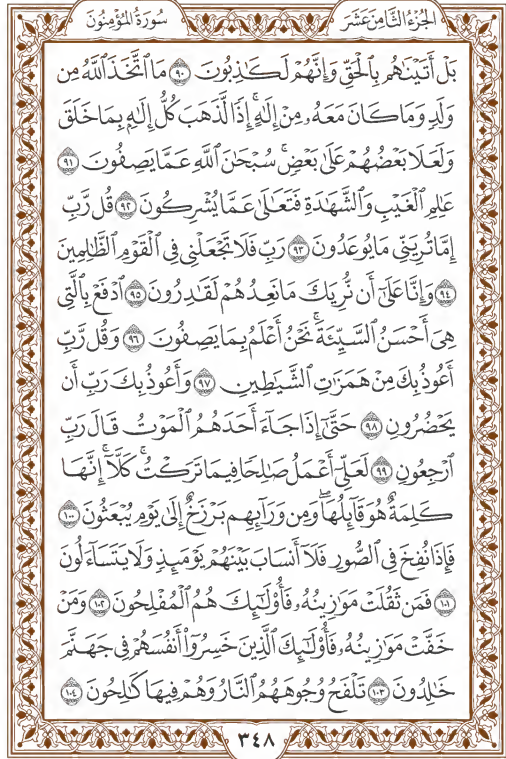 سُورَةُ المُؤْمِنُون
الجُزْءُ الثَّامِنَ عَشَرَ
بَلْ أَتَيْنَٰهُم بِالْحَقِّ وَإِنَّهُمْ لَكَٰذِبُونَ ﴿٩٠﴾ مَا اتَّخَذَ اللَّهُ مِن
وَلَدٍ وَمَا كَانَ مَعَهُۥ مِنْ إِلَٰهٍۚ إِذًا لَّذَهَبَ كُلُّ إِلَٰهٍۭ بِمَا خَلَقَ
وَلَعَلَا بَعْضُهُمْ عَلَىٰ بَعْضٍۚ سُبْحَٰنَ اللَّهِ عَمَّا يَصِفُونَ ﴿٩١﴾
عَٰلِمِ الْغَيْبِ وَالشَّهَٰدَةِ فَتَعَٰلَىٰ عَمَّا يُشْرِكُونَ ﴿٩٢﴾ قُل رَّبِّ
إِمَّا تُرِيَنِّي مَا يُوعَدُونَ ﴿٩٣﴾ رَبِّ فَلَا تَجْعَلْنِي فِي الْقَوْمِ الظَّٰلِمِينَ
﴿٩٤﴾ وَإِنَّا عَلَىٰٓ أَن نُّرِيَكَ مَا نَعِدُهُمْ لَقَٰدِرُونَ ﴿٩٥﴾ ادْفَعْ بِالَّتِي
هِيَ أَحْسَنُ السَّيِّئَةَۚ نَحْنُ أَعْلَمُ بِمَا يَصِفُونَ ﴿٩٦﴾ وَقُل رَّبِّ
أَعُوذُ بِكَ مِنْ هَمَزَٰتِ الشَّيَٰطِينِ ﴿٩٧﴾ وَأَعُوذُ بِكَ رَبِّ أَن
يَحْضُرُونِ ﴿٩٨﴾ حَتَّىٰٓ إِذَا جَآءَ أَحَدَهُمُ الْمَوْتُ قَالَ رَبِّ
ارْجِعُونِ ﴿٩٩﴾ لَعَلِّيٓ أَعْمَلُ صَٰلِحًا فِيمَا تَرَكْتُۚ كَلَّآۚ إِنَّهَا
كَلِمَةٌ هُوَ قَآئِلُهَاۖ وَمِن وَرَآئِهِم بَرْزَخٌ إِلَىٰ يَوْمِ يُبْعَثُونَ ﴿١٠٠﴾
فَإِذَا نُفِخَ فِي الصُّورِ فَلَآ أَنسَابَ بَيْنَهُمْ يَوْمَئِذٍ وَلَا يَتَسَآءَلُونَ
﴿١٠١﴾ فَمَن ثَقُلَتْ مَوَٰزِينُهُۥ فَأُو۟لَٰٓئِكَ هُمُ الْمُفْلِحُونَ ﴿١٠٢﴾ وَمَنْ
خَفَّتْ مَوَٰزِينُهُۥ فَأُو۟لَٰٓئِكَ الَّذِينَ خَسِرُوٓا۟ أَنفُسَهُمْ فِي جَهَنَّمَ
خَٰلِدُونَ ﴿١٠٣﴾ تَلْفَحُ وُجُوهَهُمُ النَّارُ وَهُمْ فِيهَا كَٰلِحُونَ ﴿١٠٤﴾
٣٤٨